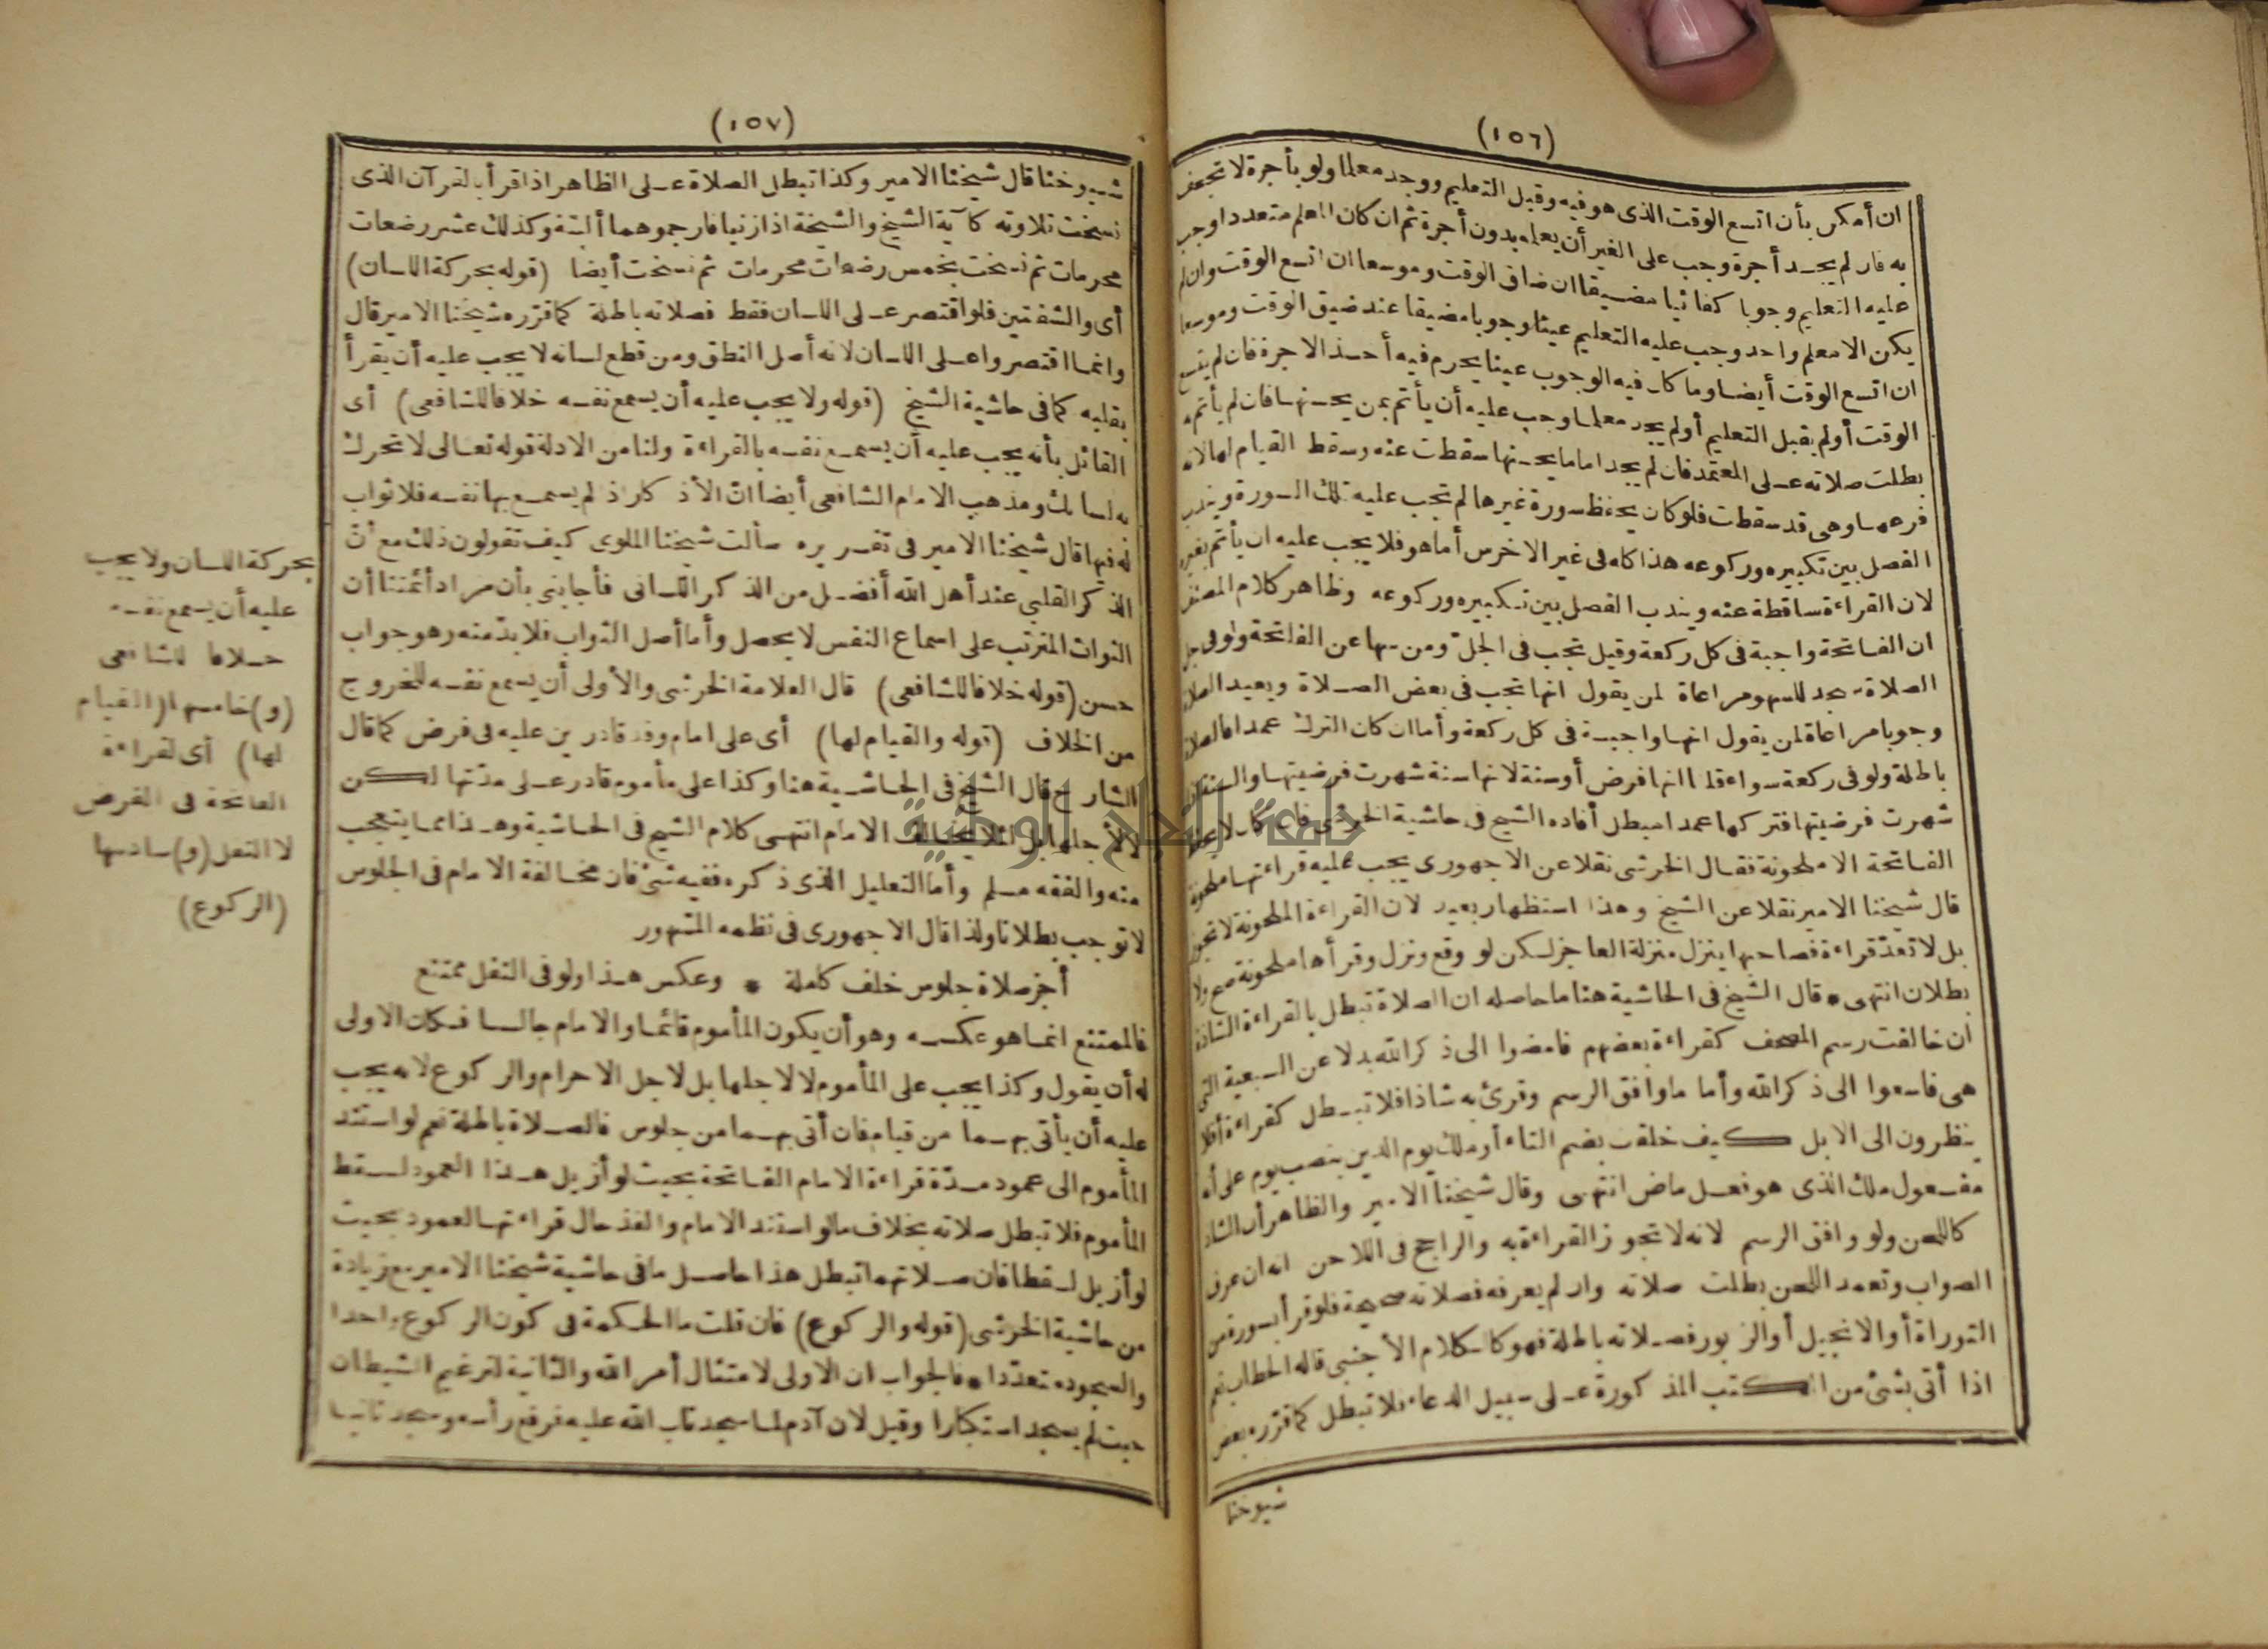 (١٥٦)
ان أمكن بأن اتسع الوقت الذى هو فيه وقبل التعليم ووجد معلما ولو بأجرة لا تجحف
به فان لم يجد أجرة وجب على الغير أن يعلمه بدون أجرة ثم ان كان المعلم متعددا وجب
عليه التعليم وجوبا كفائيا مضيقا ان ضاق الوقت وموسعا ان اتسع الوقت وان لم
يكن الا معلم واحد وجب عليه التعليم عينا وجوبا مضيقا عند ضيق الوقت وموسعا
ان اتسع الوقت أيضا وما كان فيه الوجوب عينا يحرم فيه أخذ الاجرة فان لم يتسع
الوقت أو لم يقبل التعليم أو لم يجد معلما وجب عليه أن يأتم بمن يحسنها فان لم يأتم
بطلت صلاته على المعتمد فان لم يجد اماما يحسنها سقطت عنه وسقط القيام لها لانه
فرعها وهى قد سقطت فلو كان يحفظ سورة غيرها لم تجب عليه تلك السورة ويندب
الفصل بين تكبيره وركوعه هذا كله فى غير الاخرس أما هو فلا يجب عليه ان يأتم بغيره
لان القراءة ساقطة عنه ويندب الفصل بين تكبيره وركوعه وظاهر كلام المصنف
ان الفاتحة واجبة فى كل ركعة وقيل تجب فى الجل ومن سها عن الفاتحة ولو فى جل
الصلاة سجد للسهو مراعاة لمن يقول انها تجب فى بعض الصلاة ويعيد الصلاة
وجوبا مراعاة لمن يقول انها واجبة فى كل ركعة وأما ان كان الترك عمدا فالصلاة
باطلة ولو فى ركعة سواء قلنا انها فرض أو سنة لانها سنة شهرت فرضيتها والسنة ان
شهرت فرضيتها فتركها عمدا مبطل أفاده الشيخ فى حاشية الخرشى فان كان لا يحفظ
الفاتحة الا ملحونة فقال الخرشى نقلا عن الاجهورى يجب عليه قراءتها ملحونة
قال شيخنا الامير نقلا عن الشيخ وهذا استظهار بعيد لان القراءة الملحونة لا تجوز
بل لا تعد قراءة فصاحبها ينزل منزلة العاجز لكن لو وقع ونزل وقرأها ملحونة صح ولا
بطلان انتهى * قال الشيخ فى الحاشية هنا ما حاصله ان الصلاة تبطل بالقراءة الشاذة
ان خالفت رسم المصحف كقراءة بعضهم فامضوا الى ذكر الله بدلا عن السبعية التى
هى فاسعوا الى ذكر الله وأما ما وافق الرسم وقرئ به شاذا فلا تبطل كقراءة أفلا
ينظرون الى الابل كيف خلقت بضم التاء أو ملك يوم الدين بنصب يوم على أنه
مفعول ملك الذى هو فعل ماض انتهى وقال شيخنا الامير والظاهر أن الشاذ
كاللحن ولو وافق الرسم لانه لا تجوز القراءة به والراجح فى اللاحن انه ان عرف
الصواب وتعمد اللحن بطلت صلاته وان لم يعرفه فصلاته صحيحة فلو قرأ بسورة من
التوراة أو الانجيل أو الزبور فصلاته باطلة فهو كالكلام الأجنبى قاله الحطاب نعم
اذا أتى بشئ من الكتب المذكورة على سبيل الدعاء فلا تبطل كما قرره بعض
شيوخنا
(١٥٧)
شيوخنا قال شيخنا الامير وكذا تبطل الصلاة على الظاهر اذا قرأ بالقرآن الذى
نسخت تلاوته كآية الشيخ والشيخة اذا زنيا فارجموهما ألبتة وكذلك عشر رضعات
محرمات ثم نسخت بخمس رضعات محرمات ثم نسخت أيضا (قوله بحركة اللسان)
أى والشفتين فلو اقتصر على اللسان فقط فصلاته باطلة كما قرره شيخنا الامير قال
وانما اقتصروا على اللسان لانه أصل النطق ومن قطع لسانه لا يجب عليه أن يقرأ
بقلبه كما فى حاشية الشيخ (قوله ولا يجب عليه أن يسمع نفسه خلافا للشافعى) أى
القائل بأنه يجب عليه أن يسمع نفسه بالقراءة ولنا من الادلة قوله تعالى لا تحرك
به لسانك ومذهب الامام الشافعى أيضا ان الأذكار اذ لم يسمع بها نفسه فلا ثواب
له فيها قال شيخنا الامير فى تقريره سألت شيخنا الملوى كيف تقولون ذلك مع أن
الذكر القلبى عند أهل الله أفضل من الذكر اللسانى فأجابنى بأن مراد أئمتنا أن
الثواب المترتب على اسماع النفس لا يحصل وأما أصل الثواب فلا بد منه وهو جواب
حسن (قوله خلافا للشافعى) قال العلامة الخرشى والأولى أن يسمع نفسه للخروج
من الخلاف (قوله والقيام لها) أى على امام وفذ قادرين عليه فى فرض كما قال
الشارح قال الشيخ فى الحاشية هنا وكذا على مأموم قادر على مدتها لكن
لا لأجلها بل لئلا يخالف الامام انتهى كلام الشيخ فى الحاشية وهذا مما يتعجب
منه والفقه مسلم وأما التعليل الذى ذكره ففيه شئ فان مخالفة الامام فى الجلوس
لا توجب بطلانا ولذا قال الاجهورى فى نظمه المشهور
أجز صلاة جلوس خلف كاملة * وعكس هذا ولو فى النفل ممتنع
فالممتنع انما هو عكسه وهو أن يكون المأموم قائما والامام جالسا فكان الاولى
له أن يقول وكذا يجب على المأموم لا لاجلها بل لاجل الاحرام والركوع لانه يجب
عليه أن يأتى بهما من قيام فان أتى بهما من جلوس فالصلاة باطلة نعم لو استند
المأموم الى عمود مدة قراءة الامام الفاتحة بحيث لو أزيل هذا العمود لسقط
المأموم فلا تبطل صلاته بخلاف ما لو استند الامام والفذ حال قراءتها لعمود بحيث
لو أزيل لسقطا فان صلاتهما تبطل هذا حاصل ما فى حاشية شيخنا الامير مع زيادة
من حاشية الخرشى (قوله والركوع) فان قلت ما الحكمة فى كون الركوع واحدا
والسجود متعددا * فالجواب ان الاولى لامتثال أمر الله والثانية لترغيم الشيطان
حيث لم يسجد استكبارا وقيل لان آدم لما سجد تاب الله عليه فرفع رأسه وسجد ثانيا
بحركة اللسان ولا يجب
عليه أن يسمع نفسه
خلافا للشافعى
(و) خامسها (القيام
لها) أى لقراءة
الفاتحة فى الفرض
لا النفل (و) سادسها
(الركوع)